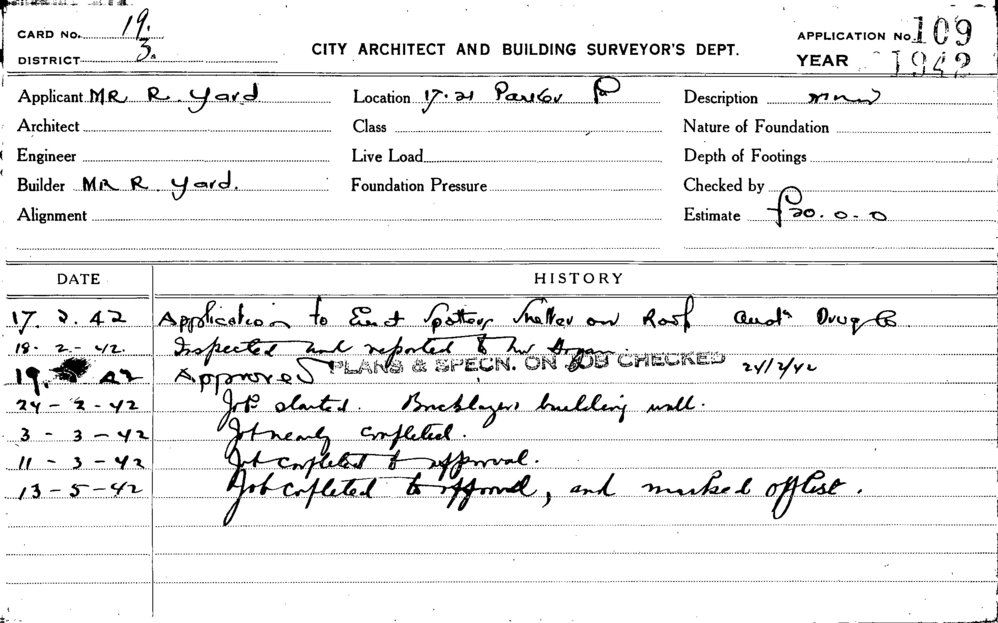 CARD No. 19.
DISTRICT 3.
CITY ARCHITECT AND BUILDING SURVEYOR'S DEPT.
APPLICATION No. 109
YEAR 1942
Applicant MR R. Yard Location 17-21 Parker Description
Architect Class Nature of Foundation
Engineer Live Load Depth of Footings
Builder MR R. Yard. Foundation Pressure Checked by
Alignment Estimate £20.0.0
DATE HISTORY
17. 2. 42 Application to Erect Spotters Shelter on Roof Aust. Drug Co
18-2-42. Inspected and reported to Mr
19. 42 Approved PLANS & SPECN. ON JOB CHECKED 24/2/42
24-2-42 Job started. Bricklayers building wall.
3-3-42 Job nearly completed.
11-3-42 Job completed to approval.
13-5-42 Job completed to approval, and marked off list.